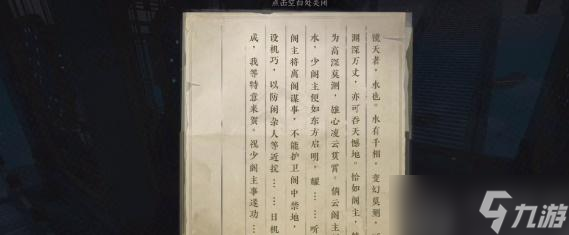 点击空白处关闭
镜天者，水也。水有千相，变幻莫测，
渊深万丈，亦可吞天憾地。恰如阁主，
为高深莫测，雄心凌云贯霄。倘云阁主
水，少阁主便如东方启明，耀……听
阁主将离阁谋事，不能护卫阁中禁地，
设机巧，以防闲杂人等近扰……日机
成，我等特意来贺。祝少阁主事遂功……
九游